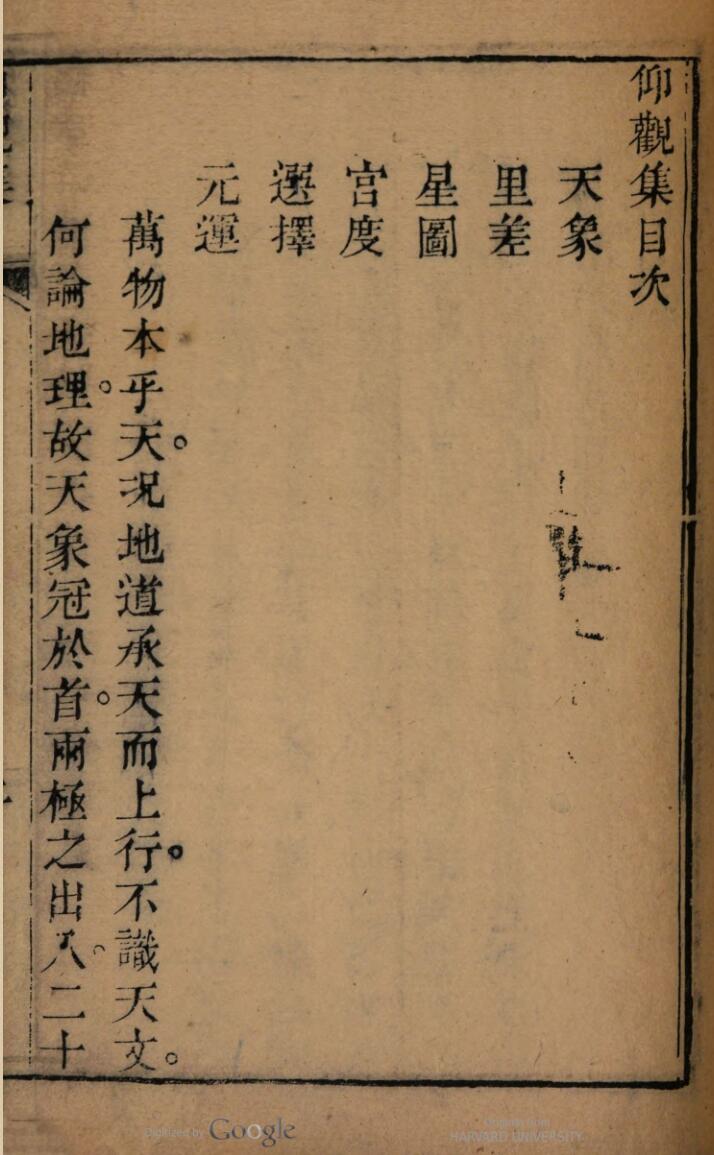 仰觀集目次
天象
里差
星圖
宮度
選擇
元運
萬物本乎天。況地道承天而上行。不識天文。
何論地理。故天象冠於首。兩極之出入。二十
Digitized by Google
Original from
HARVARD UNIVERSITY